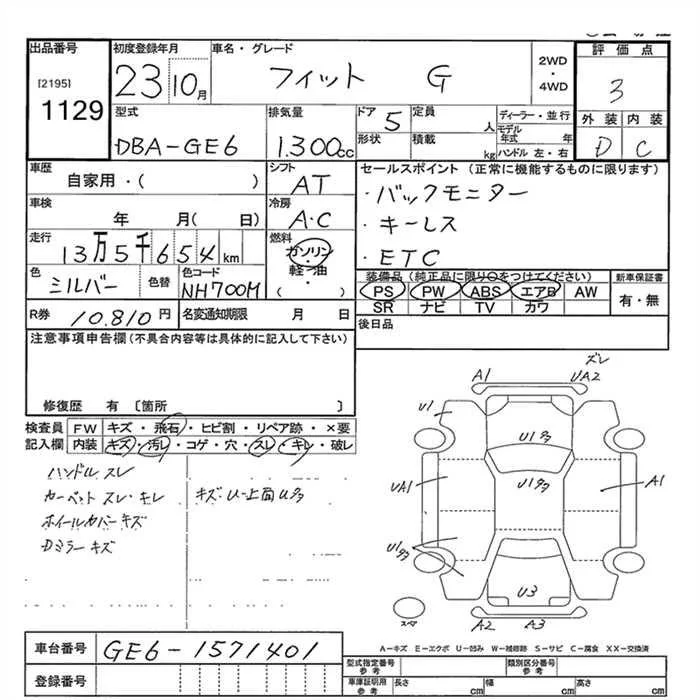 出品番号
[2195]
1129
初度登録年月
23 10月
車名・グレード
フィット G
2WD
・
4WD
評価点
3
外装 内装
D C
型式
DBA-GE6
排気量
1.300cc
ドア 5
定員 人
形状
積載 kg
ディーラー・並行
モデル年式 年
ハンドル 左・右
車歴
自家用・( )
シフト
AT
セールスポイント (正常に機能するものに限ります)
・バックモニター
・キーレス
・ETC
車検
年 月( 日)
冷房
A・C
走行
13万5千654km
燃料
ガソリン
軽・油
( )
色
シルバー
色替
色コード
NH700M
装備品(純正品に限り○をつけてください)
PS PW ABS エアB AW
SR ナビ TV カワ
新車保証書
有・無
R券 10.810円
名変通知期限 月 日
後日品
注意事項申告欄(不具合内容等は具体的に記入して下さい)
修復歴 有 〔箇所 〕
検査員記入欄
FW キズ・飛石・ヒビ割・リペア跡・×要
内装 キズ・汚レ・コゲ・穴・スレ・キレ・破レ
ハンドル スレ
カーペット スレ・キレ
ホイールカバー キズ
Dミラー キズ
キズ・U-上面U多
ズレ
A1
UA2
U1
U1多
UA1
U1多
A1
U1多
U3
A2
A3
スペア
A-キズ E-エクボ U-凹み W-補修跡 S-サビ C-腐食 XX-交換済
車台番号 GE6-1571401
登録番号
型式指定番号
参考
類別区分番号
参考
車庫証明用
参考
長さ cm
幅 cm
高さ cm